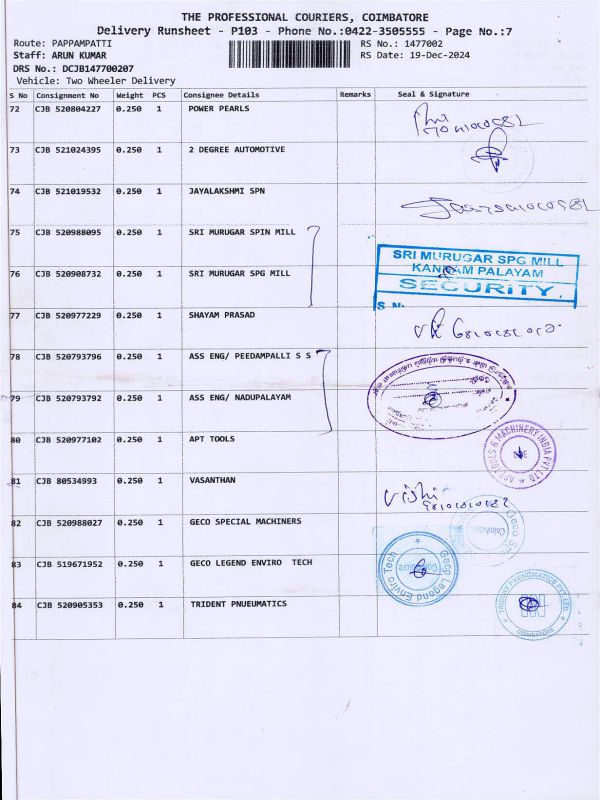 THE PROFESSIONAL COURIERS, COIMBATORE
Delivery Runsheet - P103 - Phone No.:0422-3505555 - Page No.:7
Route: PAPPAMPATTI RS No.: 1477002
Staff: ARUN KUMAR RS Date: 19-Dec-2024
DRS No.: DCJB147700207
Vehicle: Two Wheeler Delivery
S No Consignment No Weight PCS Consignee Details Remarks Seal & Signature
72 CJB 520804227 0.250 1 POWER PEARLS
73 CJB 521024395 0.250 1 2 DEGREE AUTOMOTIVE
74 CJB 521019532 0.250 1 JAYALAKSHMI SPN
75 CJB 520988095 0.250 1 SRI MURUGAR SPIN MILL
SRI MURUGAR SPG MILL
KANGAM PALAYAM
SECURITY
S.No
76 CJB 520908732 0.250 1 SRI MURUGAR SPG MILL
77 CJB 520977229 0.250 1 SHAYAM PRASAD
78 CJB 520793796 0.250 1 ASS ENG/ PEEDAMPALLI S S
79 CJB 520793792 0.250 1 ASS ENG/ NADUPALAYAM
80 CJB 520977102 0.250 1 APT TOOLS
APT TOOLS & MACHINERY INDIA PVT LTD
81 CJB 80534993 0.250 1 VASANTHAN
82 CJB 520988027 0.250 1 GECO SPECIAL MACHINERS
83 CJB 519671952 0.250 1 GECO LEGEND ENVIRO TECH
Geco Legend Enviro Tech
84 CJB 520905353 0.250 1 TRIDENT PNUEUMATICS
TRIDENT PNEUMATICS PVT LTD.
COIMBATORE